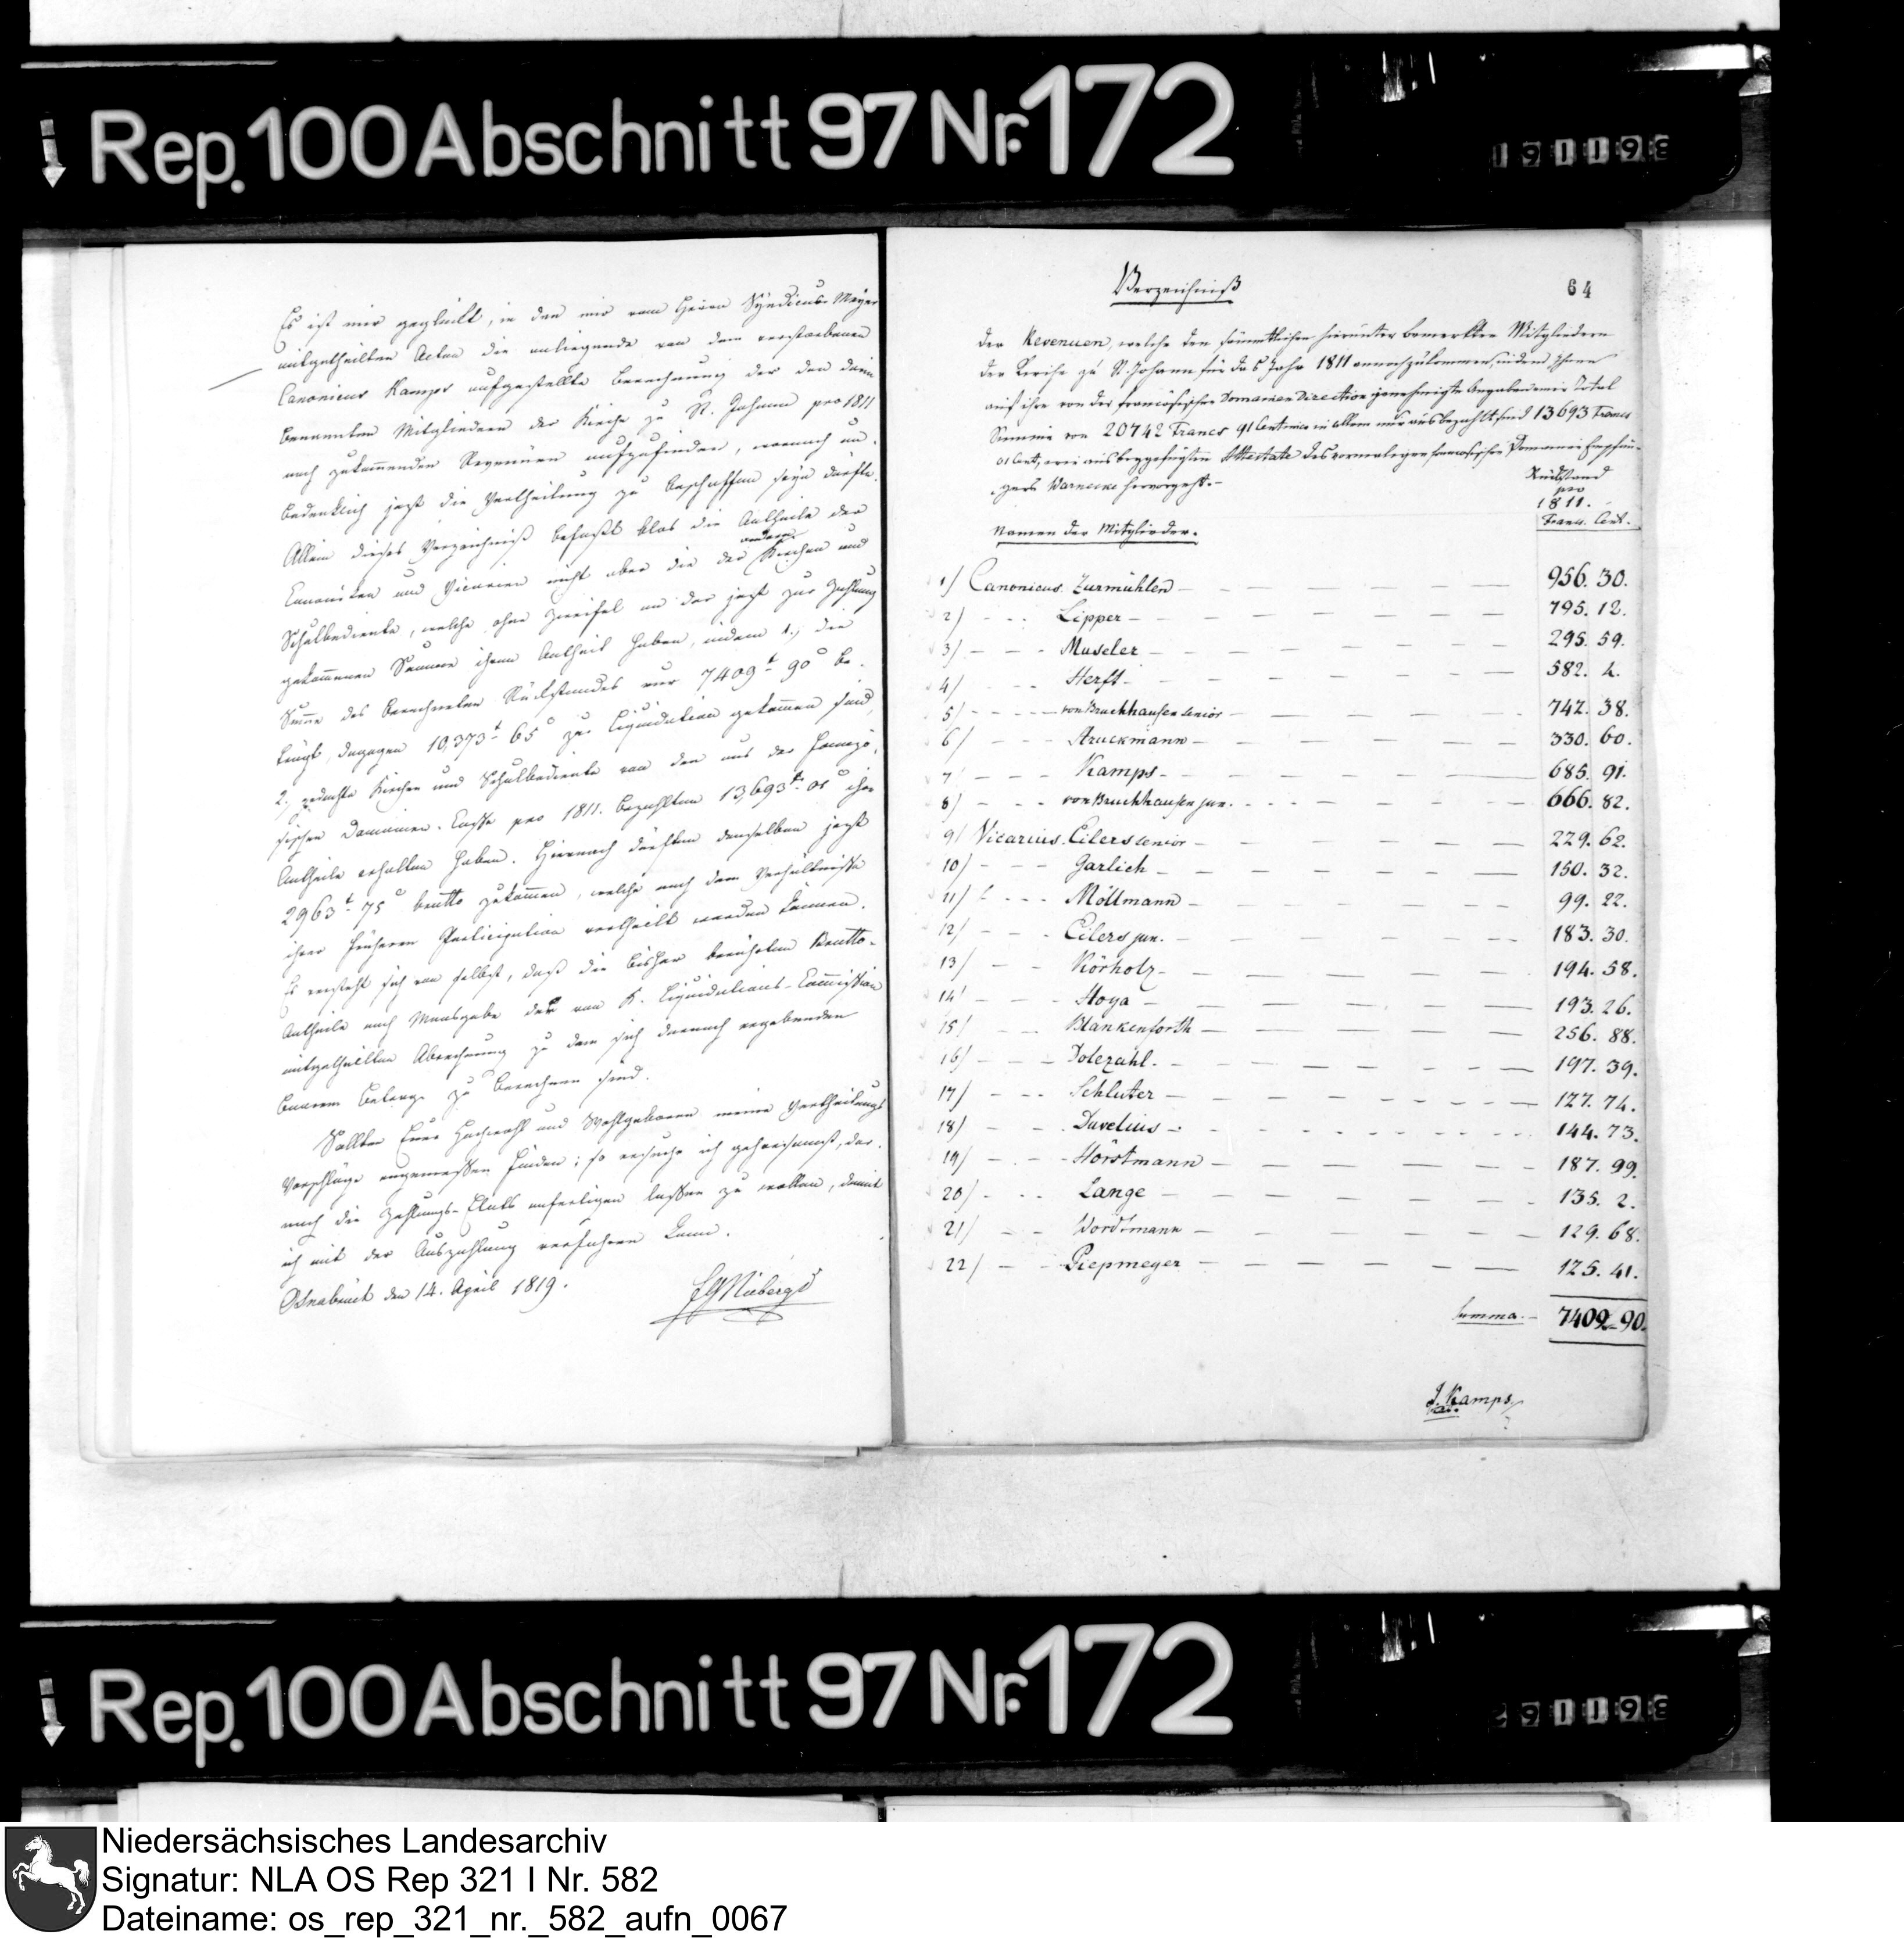 Rep. 100 Abschnitt 97 Nr. 172
Es ist mir geglückt, in den mir vom Herrn Syndicus Meyer
mitgetheilten Acten die anliegende von dem verstorbenen
Canonicus Kamps aufgestellte Berechnung der den darin
benannten Mitgliedern der Kirche zu St. Johann pro 1811
noch zukommenden Revenüen aufzufinden, wornach un-
bedenklich jetzt die Vertheilung zu beschaffen seyn dürfte.
Allein dieses Verzeichniß befaßt blos die Antheile der
Canoniken und Vicarien nicht aber die der andern Kirchen und
Schulbediente, welche ohne Zweifel an der jetzt zur Zahlung
gekommenen Summe ihren Antheil haben, indem 1., die
Summe des berechneten Rückstandes nur 7409 f 90 c be-
trägt, dagegen 10,373 f 65 c zur Liquidation gekommen sind,
2., gedachte Kirchen und Schulbediente von den aus der französi-
sischen Domainen-Casse pro 1811. bezahlten 13,693 f 01 c ihre
Antheile erhalten haben. Hiernach dürften denselben jetzt
2963 f 75 c brutto zukommen, welche nach dem Verhältnisse
ihrer früheren Participation vertheilt werden können.
Es versteht sich von selbst, daß die bisher berührten Brutto-
Antheile nach Maasgabe der von K. Liquidations-Commission
mitgetheilten Abrechnung zu dem sich darnach ergebenden
baaren Betrage zu berechnen sind.
Sollten Euer Hochwohl und Wohlgeboren meine Vertheilungs
Vorschläge angemessen finden; so ersuche ich gehorsamst, dar-
nach die Zahlungs-Etats anfertigen lassen zu wollen, damit
ich mit der Auszahlung verfahren kann.
Osnabrück den 14. April 1819.
Verzeichniß
64
der Revenuen, welche den sämmtlichen hierunter bemerkten Mitgliedern
der Kirche zu St. Johann für das Jahr 1811 annoch zukommen, indem ihnen
auf ihre von der französischen Domainen Direction genehmigte Angabe deren Total
Summe von 20742 Francs 91 Centimes in Allem nur ausbezahlt sind 13693 Francs
01 Cent, wie aus beygefügtem Attestate des vormaligen französischen Domainen Empfän-
gers Warnecke hervorgeht.-
Rückstand
pro
1811.
Namen der Mitglieder.
Francs. Cent.
1) Canonicus Zurmühlen 956. 30.
2) Lipper 795. 12.
3) Museler 295. 59.
4) Herft 582. 4.
5) von Bruchhausen senior 742. 38.
6) Struckmann 330. 60.
7) Kamps 685. 91.
8) von Bruchhausen jun. 666. 82.
9) Vicarius Eilers senior 229. 62.
10) Garlich 150. 32.
11) Möllmann 99. 22.
12) Eilers jun. 183. 30.
13) Körholz 194. 58.
14) Hoya 193. 26.
15) Blankenforth 256. 88.
16) Dolezahl 197. 39.
17) Schluter 127. 74.
18) Duvelius 144. 73.
19) Horstmann 187. 99.
20) Lange 135. 2.
21) Wordtmann 129. 68.
22) Piepmeyer 125. 41.
Summa 7409.-90.
J. Kamps
Rep. 100 Abschnitt 97 Nr. 172
Niedersächsisches Landesarchiv
Signatur: NLA OS Rep 321 I Nr. 582
Dateiname: os_rep_321_nr._582_aufn_0067